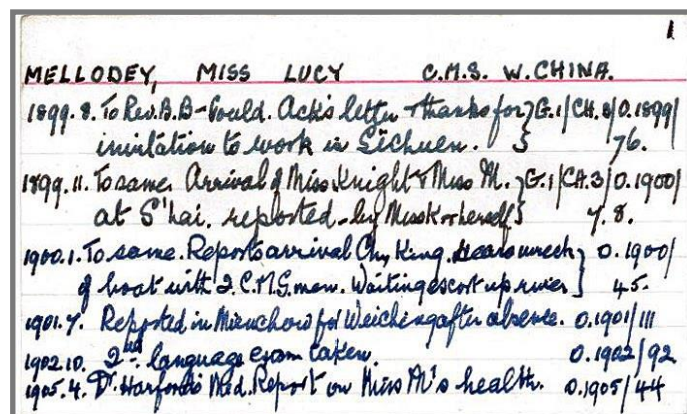 1
MELLODEY, MISS LUCY C.M.S. W. CHINA.
1899.8. To Rev. B.B-Gould. Ack's letter + thanks for } G.1/CH.3/0.1899/
invitation to work in Sĕchuen. } 76.
1899.11. To same Arrival of Miss Knight & Miss M. } G.1/CH.3/0.1900/
at S'hai. reported - by Miss K & herself } 7.8.
1900.1. To same. Reports arrival Ch, King. Hears wreck } 0.1900/
of boat with 2 C.M.S. men. Waiting escort up river } 45.
1901.7. Reported in Mienchow for Weicheng after absence. 0.1901/111
1902.10. 2nd language exam taken. 0.1902/92
1905.4. Dr. Harford's Med. Report on Miss M's health. 0.1905/44